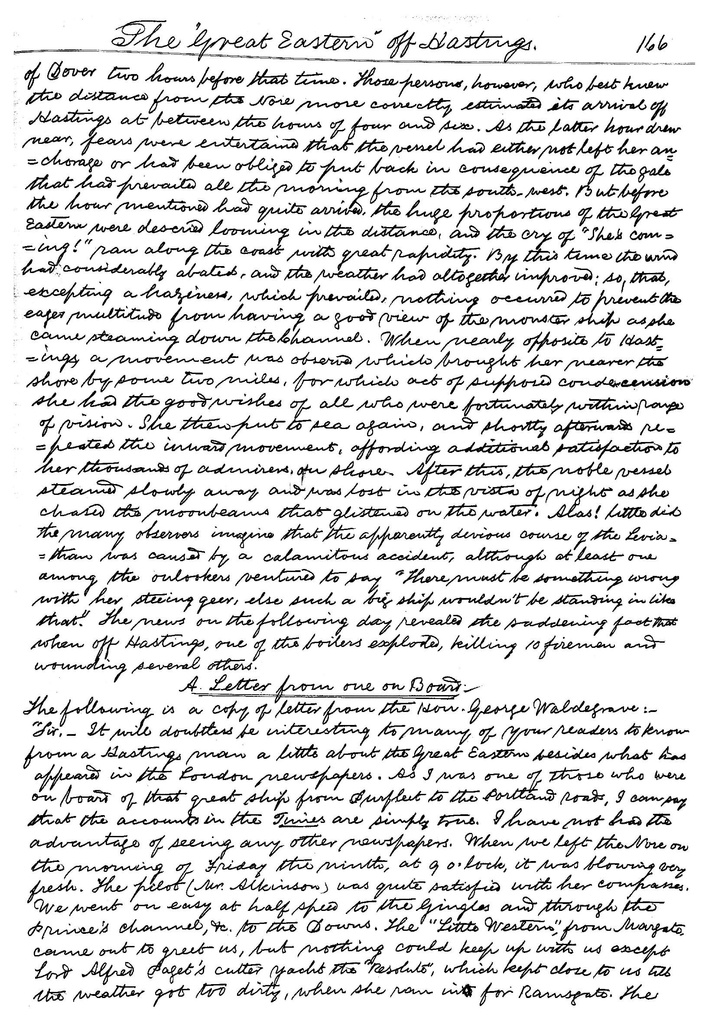 The "Great Eastern" off Hastings. 166
of Dover two hours before that time. Those persons, however, who best knew
the distance from the Nore more correctly estimated its arrival off
Hastings at between the hours of four and six. As the latter hour drew
near, fears were entertained that the vessel had either not left her an=
=chorage or had been obliged to put back in consequence of the gale
that had prevailed all the morning from the south-west. But before
the hour mentioned had quite arrived, the huge proportions of the Great
Eastern were descried looming in the distance, and the cry of "She's com=
=ing!" ran along the coast with great rapidity. By this time the wind
had considerably abated, and the weather had altogether improved; so, that,
excepting a haziness, which prevailed, nothing occurred to prevent the
eager multitude from having a good view of the monster ship as she
came steaming down the Channel. When nearly opposite to Hast=
=ings a movement was observed which brought her nearer the
shore by some two miles, for which act of supposed condescension
she had the good wishes of all who were fortunately within range
of vision. She then put to sea again, and shortly afterward re=
=peated the inward movement, affording additional satisfaction to
her thousands of admirers on shore. After this, the noble vessel
steamed slowly away and was lost in the vista of night as she
chased the moonbeams that glistened on the water. Alas! little did
the many observers imagine that the apparently divious course of the Levia=
=than was caused by a calamitous accident, although at least one
among the onlookers ventured to say "There must be something wrong
with her steeing geer, else such a big ship wouldn't be standing in like
that." The news on the following day revealed the saddening fact that
when off Hastings, one of the boilers exploded, killing 10 firemen and
wounding several others.
A Letter from one on Board:-
The following is a copy of letter from the Hon. George Waldegrave:-
"Sir,- It will doubtless be interesting to many of your readers to know
from a Hastings man a little about the Great Eastern besides what has
appeared in the London newspapers. As I was one of those who were
on board of that great ship from Purfleet to the Portland roads, I can say
that the accounts in the Times are simply true. I have not had the
advantage of seeing any other newspapers. When we left the Nore on
the morning of Friday the ninth, at 9 o.lock, it was blowing very
fresh. The pilot (Mr. Atkinson) was quite satisfied with her compasses.
We went on easy at half speed to the Gingles and through the
Prince's channel, &c. to the Downs. The "Little Western", from Margate
came out to greet us, but nothing could keep up with us except
Lord Alfred Paget's cutter yacht the "Resolute", which kept close to us till
the weather got too dirty, when she ran in for Ramsgate. The